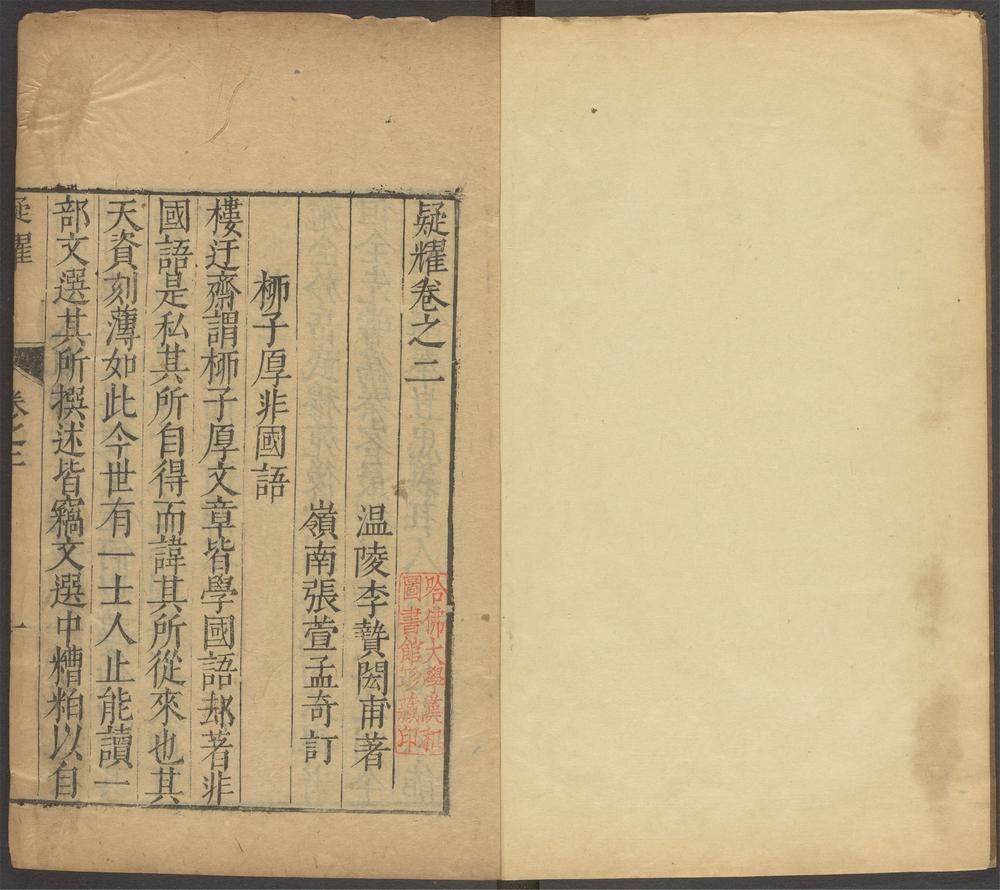 疑耀卷之二
温陵李贄閎甫著
嶺南張萱孟奇訂
柳子厚非國語
樓迂齋謂柳子厚文章皆學國語却著非
國語是私其所自得而諱其所從來也其
天資刻薄如此今世有一士人止能讀一
部文選其所撰述皆竊文選中糟粕以自
疑耀
卷之二
一
哈佛大學漢和
圖書館珍藏印